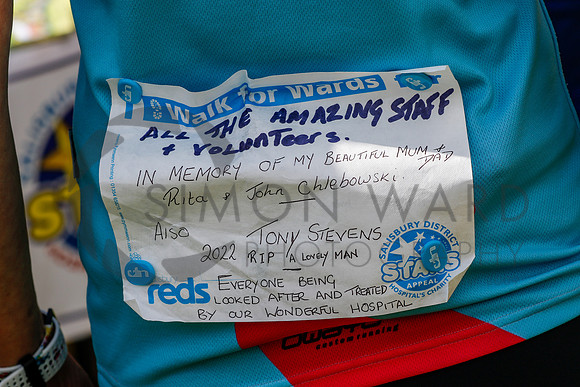 Walk for Wards
ALL THE AMAZING STAFF
+ VOLUNTEERS.
IN MEMORY OF MY BEAUTIFUL MUM +
DAD
Rita & John Chlebowski.
SIMON WARD
PHOTOGRAPHY
ALSO TONY STEVENS
2022 RIP A LOVELY MAN
SALISBURY DISTRICT
STARS
APPEAL
HOSPITAL'S CHARITY
reds
EVERYONE BEING
LOOKED AFTER AND TREATED
BY OUR WONDERFUL HOSPITAL
owayo
custom readning